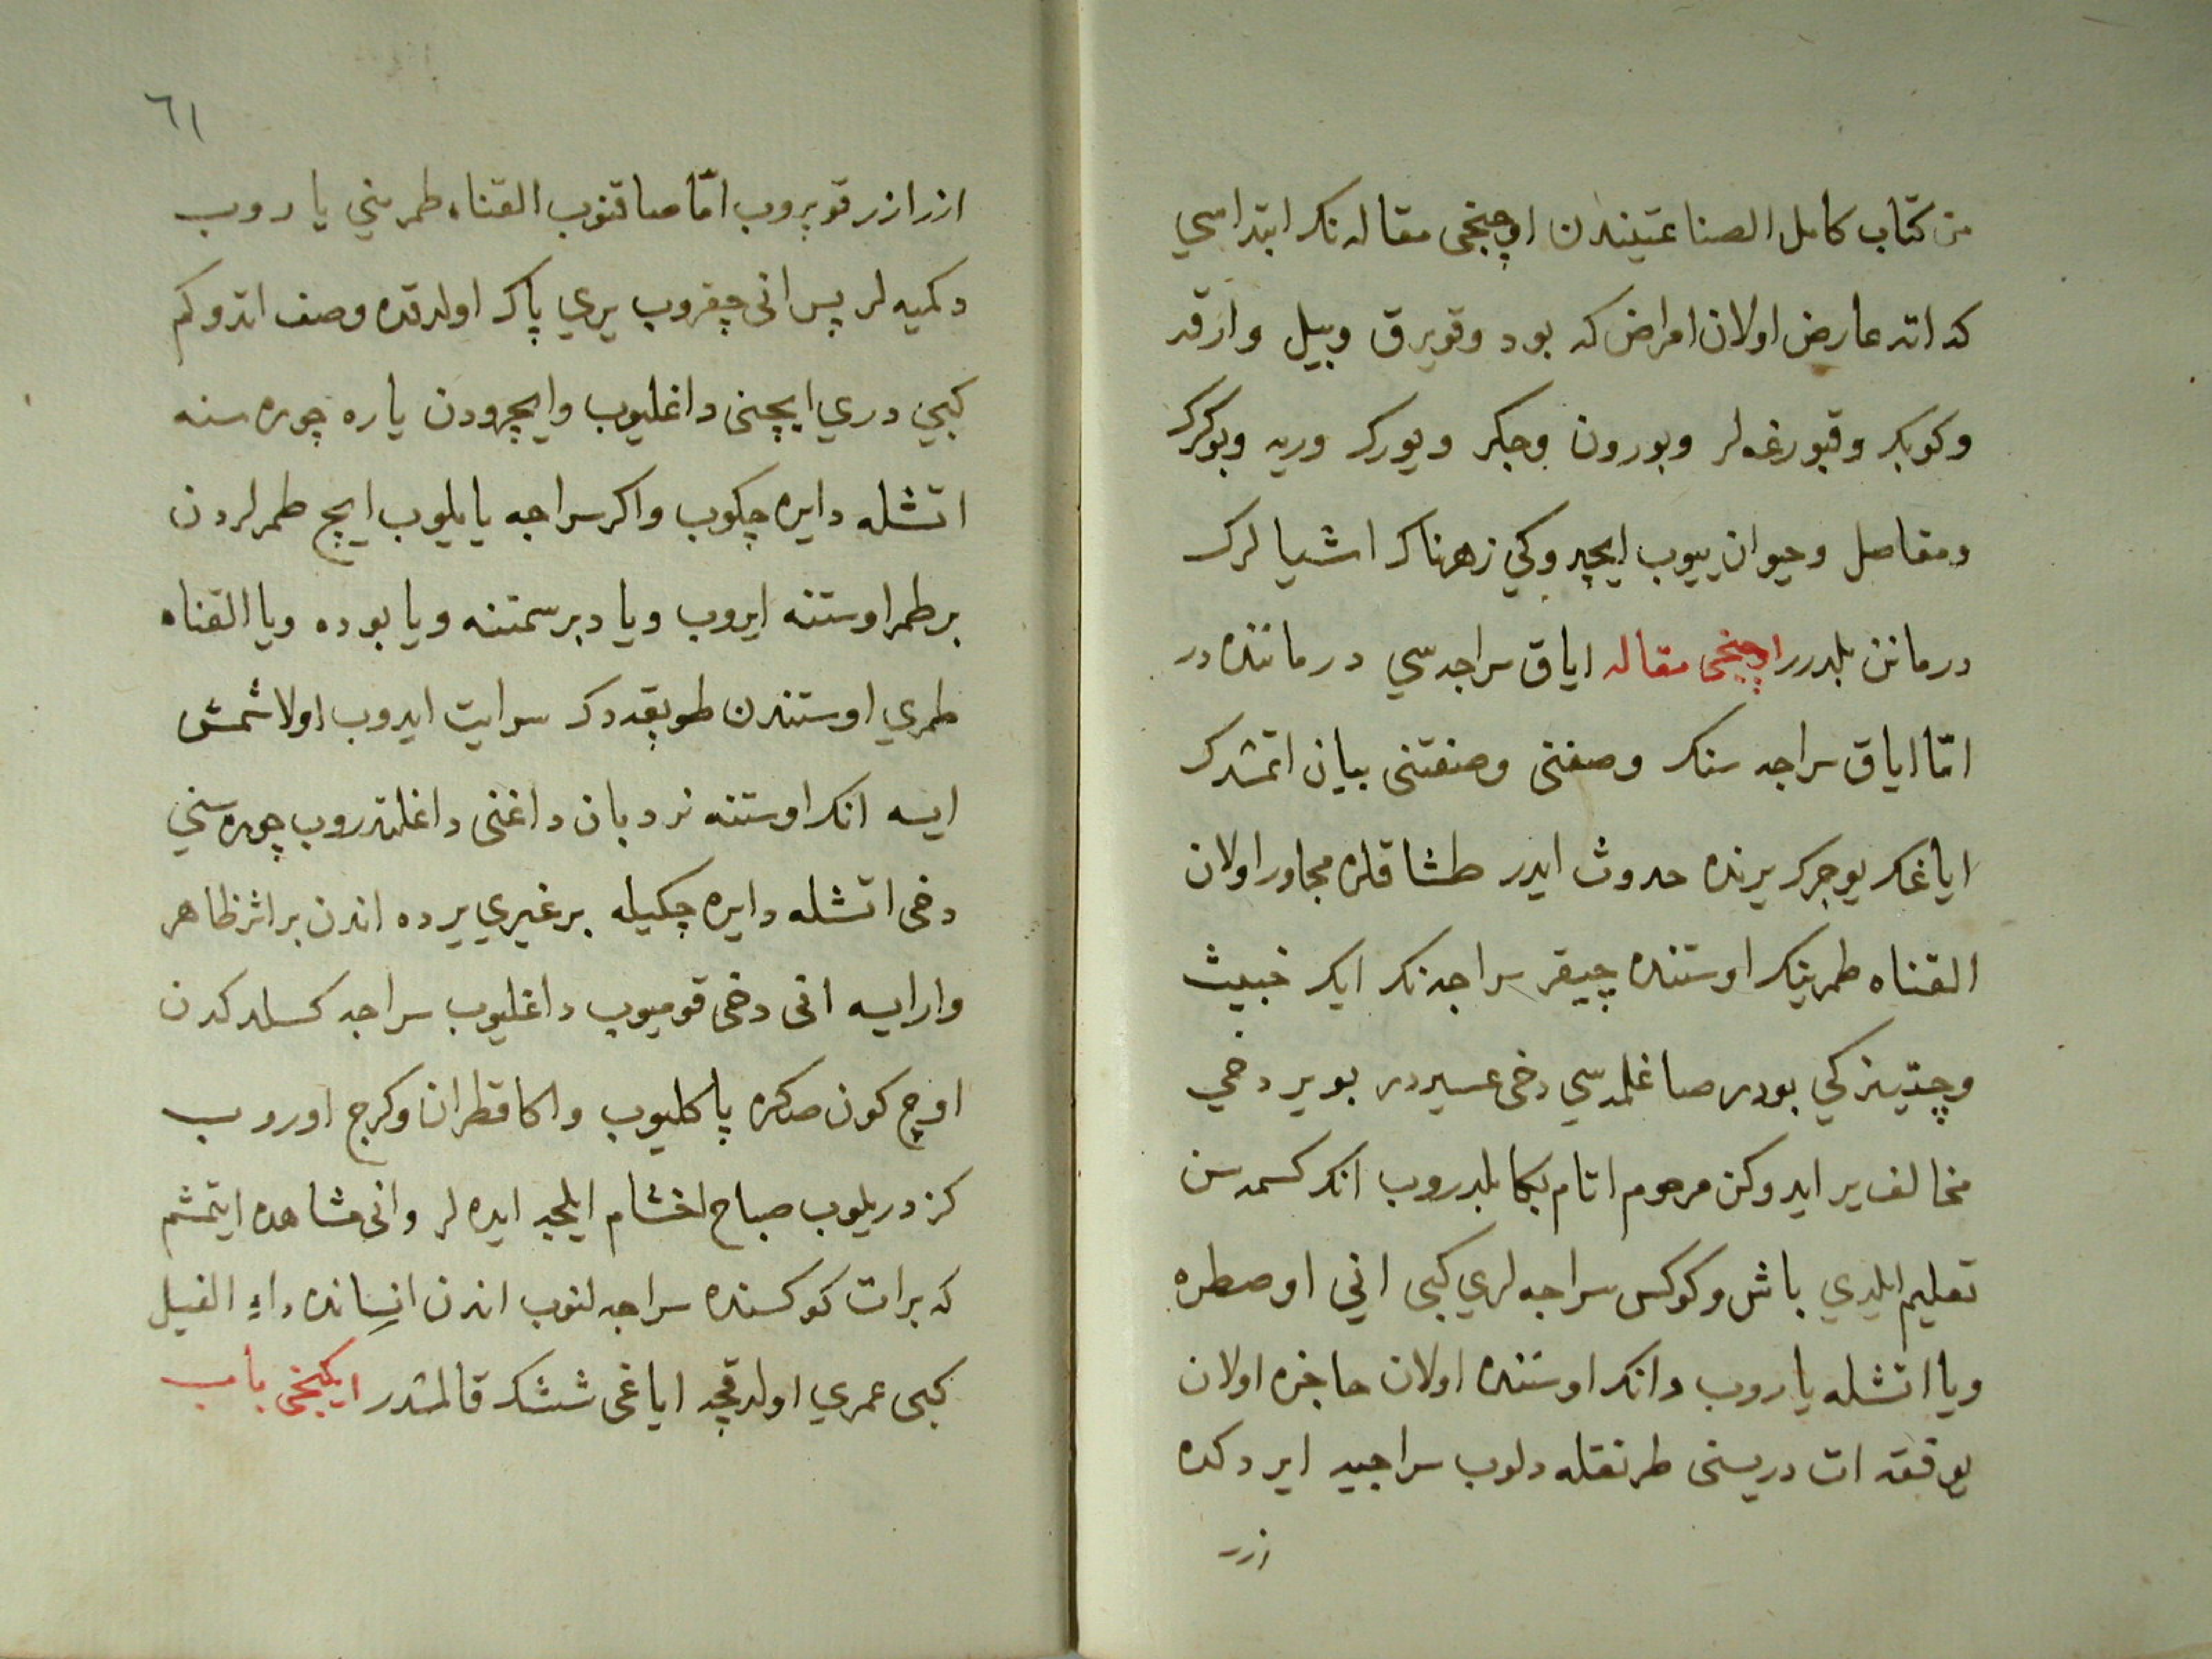 من كتاب كامل الصناعتيندن اوچنجى مقاله نك ابتداسي
كه اته عارض اولان امراض كه بود وقويرق وبيل وارقه
وكوبك وقبورغه لر وبورون وجكر ويورك وريه وبوكرك
ومفاصل وحيوان ييوب ايچدوكي زهرناك اشيالرك
درمانن بلدرر اوچنجى مقاله اياق سراجه سي درماننده در
امّا اياق سراجه سنك وصفنى وصنفتنى بيان اتمشدرك
اياغك يوجرك يرنده حدوث ايدر طشاقلره مجاور اولان
القناه طمرينك اوستنده چيقر سراجه نك ايك خبيث
وچتينركي بودر صاغلمه سي دخى عسيردر بو ير دخي
مخالف ير ايدوكن مرحوم اتام بكا بلدروب انك كسمه سن
تعليم ايلدي باش وكوكس سراجه لري كبى اني اوصطره
ويا اتشله ياروب وانك اوستنده اولان حاجزه اولان
يوفقه ات دريسنى طرنقله دلوب سراجيه ايردكده
ازر
٦١
ازر ازر قوپروب امّا صاقنوب القناه طمريني ياروب
دكميه لر پس انى چقروب يري پاك اولدقده وصف اتدوكم
كبي دري ايچنى داغليوب وايچرودن ياره چوره سنه
اتشله دايره چكوب واكر سراجه يايلوب ايچ طمرلردن
بر طمر اوستنه ايروب ويا دبر سمتنه ويا بوده ويا القناه
طمري اوستندن طوبقه دك سرايت ايدوب اولاشمش
ايسه انك اوستنه نردبان داغنى داغلتدروب چوره سني
دخى اتشله دايره چكيله بر غيري يرده اندن بر اثر ظاهر
وار ايسه انى دخى قوميوب داغليوب سراجه كسلدكدن
اوچ كون صكره پاكليوب واكا قطران وكرج اوروب
كزدريلوب صباح اخشام ايلجه ايده لر وانى مشاهده ايتمشم
كه بر ات كوكسنده سراجه لنوب اندن انسانده داء الفيل
كبى عمري اولدقچه اياغى ششك قالمشدر ايكنجى باب